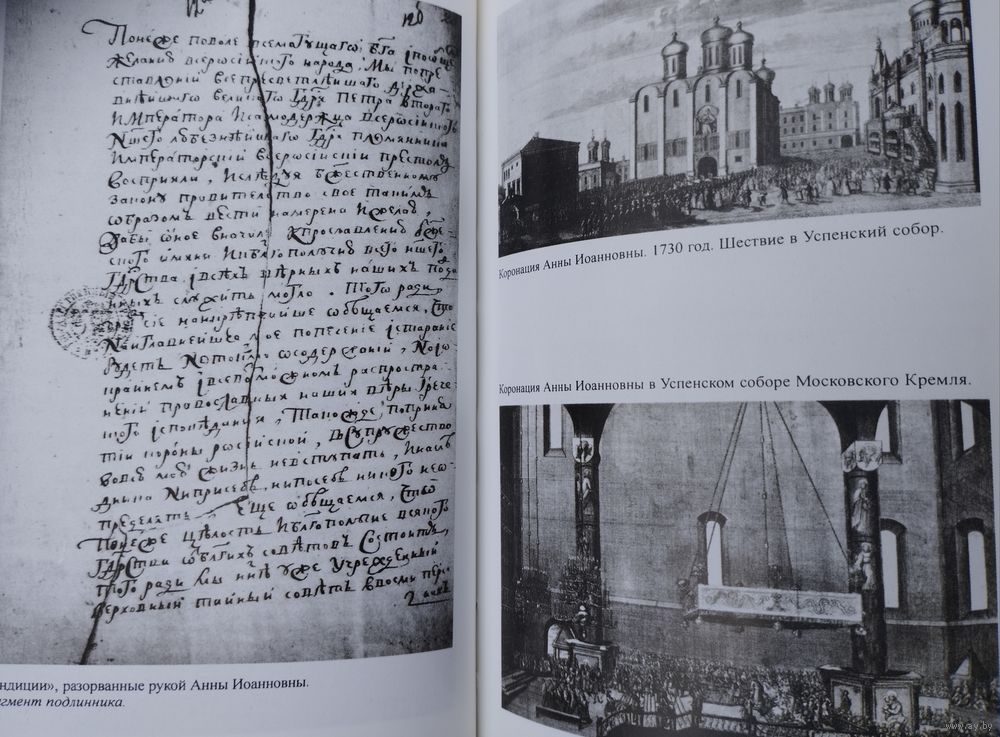 120
Понеже поволе всемогущаго бга іпообще
желанию всеросіискаго народа, Мы попре
ставлениі всепресветлѣишаго держа
внѣишаго великаго Гдря Петра второго
Императора Исамодержца Всеросіиского
Ншего любезнѣишаго Гдря племянника
Императорскиі всеросіискиі престолъ
восприяли, Ислѣдуя бжественному
закону правителство свое такимъ
образомъ вести намерена Ижелаю,
дабы оное вначале кпрославлению бже
ского имяни Иблгополучию всего ншего
Гдрства івсѣхъ вѣрныхъ нашихъ подда
нныхъ служить могло. Того ради
чрезъсие наикрѣпчаише обѣщаемся, что
Наиглавнеишее мое попечение істарание
будетъ Нетокмо осодержаниі, Ноіо
краинемъ івсевозможномъ распростра
нениі православныя нашея вѣры грече
ского ісповѣдания, Такожде, поприня
тиі короны росіискоі, Всупружество
вовсю мою жизнь невступать, Инаслѣ
дника Ниприсебѣ, нипосебѣ никого неоп
пределять. Еще обѣщаемся, что
Понеже цѣлость Иблгополучие всякого
Гдрства отблгихъ совѣтовъ Состоитъ,
того ради Мы нынѣ уже учрежденныі
верховныі таиныі совѣтъ восми персо
нахъ
ндиции», разорванные рукой Анны Иоанновны.
агмент подлинника.
Коронация Анны Иоанновны. 1730 год. Шествие в Успенский собор.
Коронация Анны Иоанновны в Успенском соборе Московского Кремля.
www.ay.by